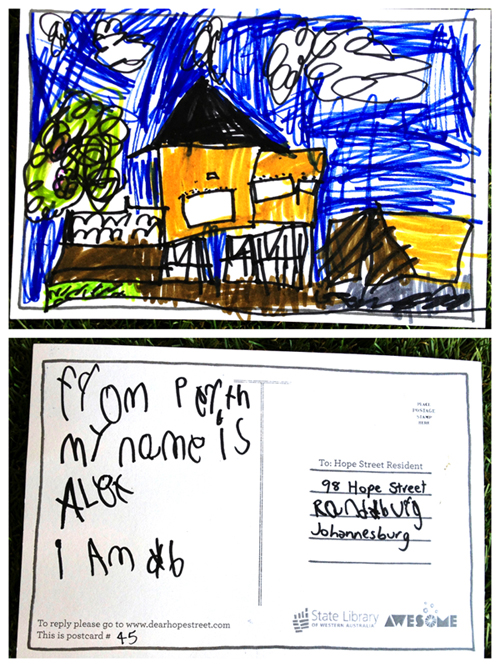 From Perth
my name is
Alex
I Am 6
PLACE
POSTAGE
STAMP
HERE
To: Hope Street Resident
98 Hope Street
Randburg
Johannesburg
To reply please go to www.dearhopestreet.com
This is postcard # 45
State Library
OF WESTERN AUSTRALIA
AWESOME